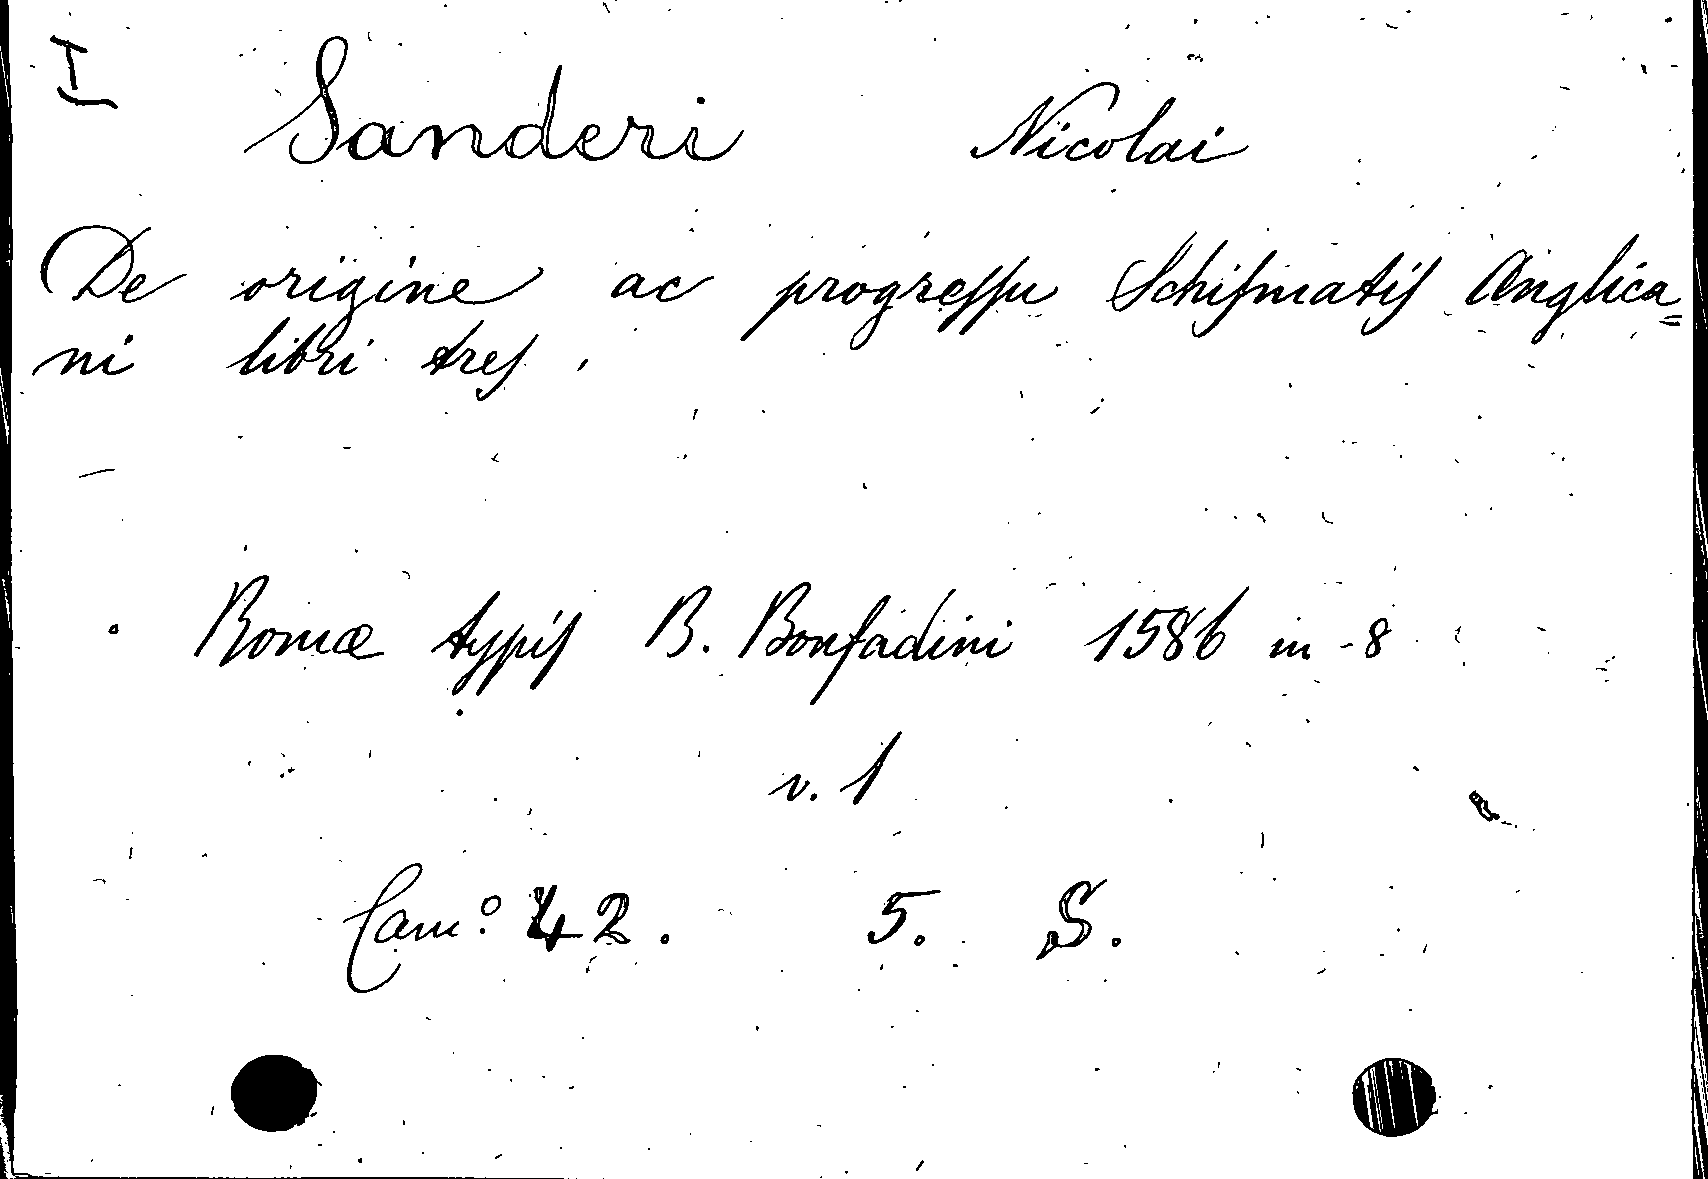 I
Sanderi Nicolai
De origine ac progreſſu Schiſmatiſ Anglica=
ni libri treſ.
Romæ typiſ B. Bonfadini 1586 in-8
v. 1
Cam.º 42. 5. S.